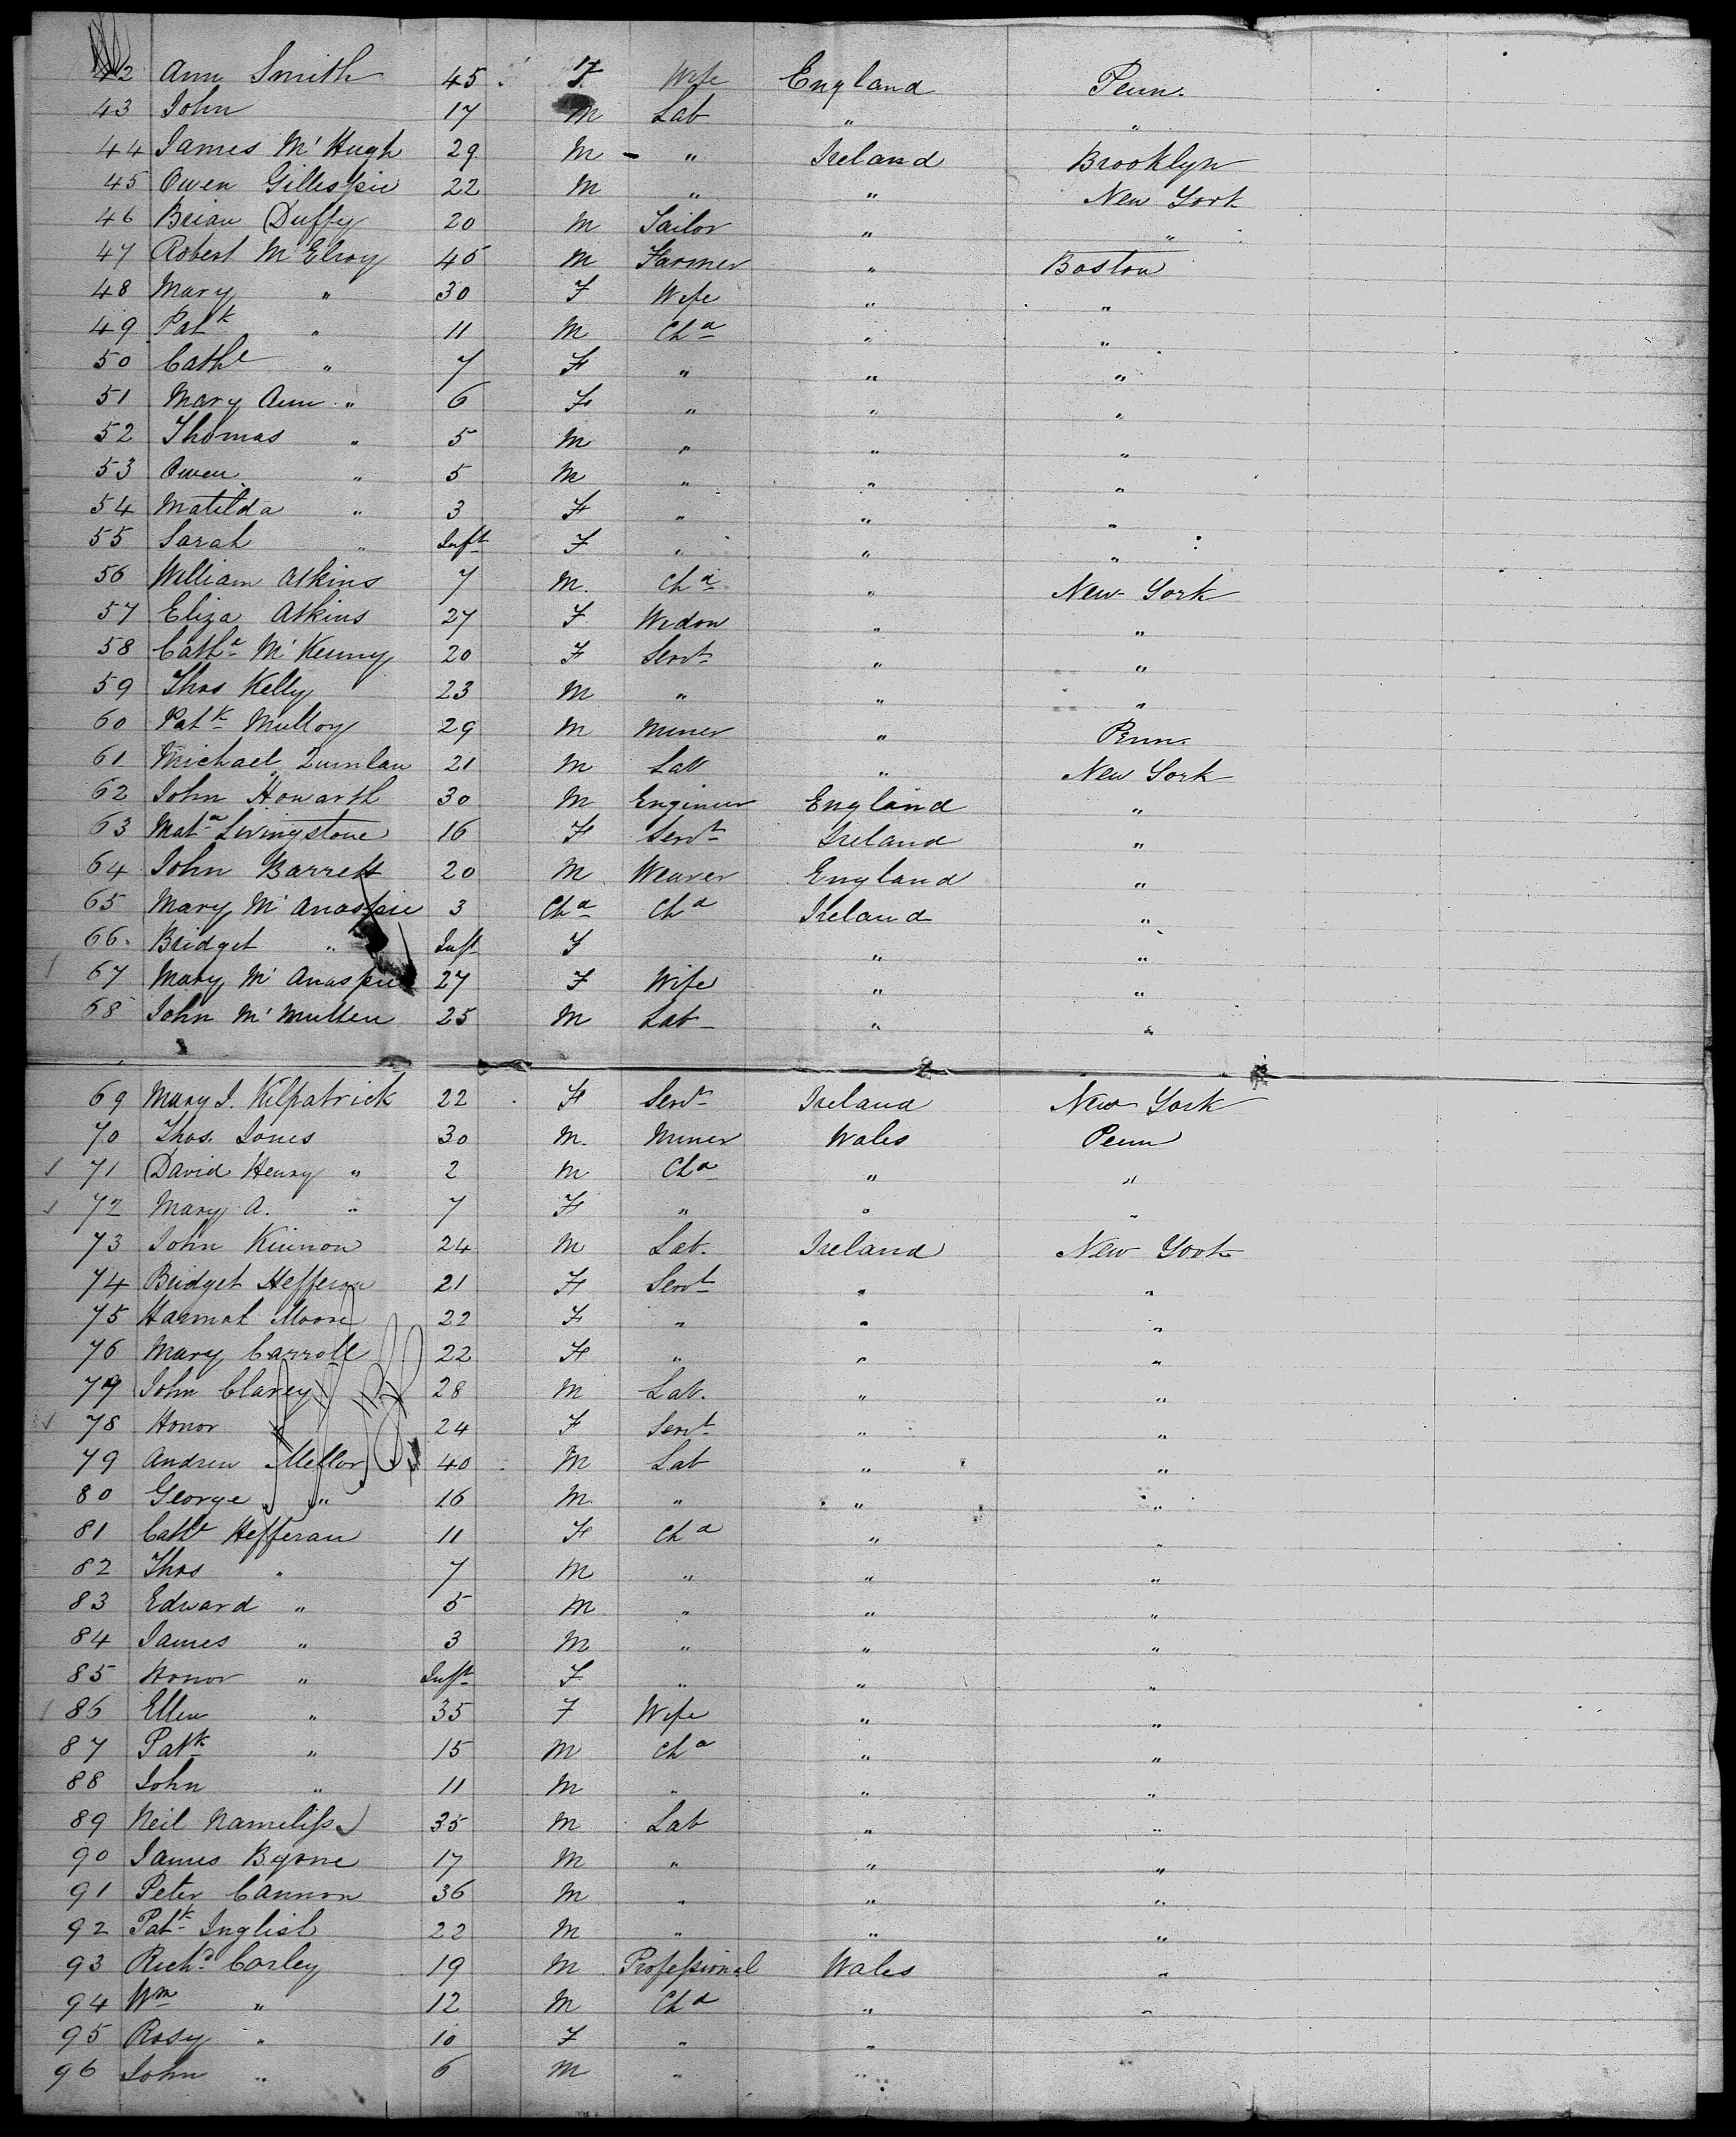 42 Ann Smith 45 F Wife England Penn.
43 John 17 M Lab " "
44 James McHugh 29 M - " Ireland Brooklyn
45 Owen Gillespie 22 M " " New York
46 Brian Duffy 20 M Tailor " "
47 Robert McElroy 45 M Farmer " Boston
48 Mary " 30 F Wife " "
49 Patk " 11 M Chd " "
50 Cathe " 7 F " " "
51 Mary Ann " 6 F " " "
52 Thomas " 5 M " " "
53 Owen " 5 M " " "
54 Matilda " 3 F " " "
55 Sarah " Inft F " " "
56 William Atkins 7 M. Chd " New York
57 Eliza Atkins 27 F Widow " "
58 Cathe McKenny 20 F Servt " "
59 Thos Kelly 23 M " " "
60 Patk Mulloy 29 M Miner " Penn.
61 Michael Quinlan 21 M Lab " New York
62 John Howarth 30 M Engineer England "
63 Mata Livingstone 16 F Servt Ireland "
64 John Barrett 20 M Weaver England "
65 Mary McAnaspie 3 Chd Chd Ireland "
66. Bridget " Inft F " "
67 Mary McAnaspie 27 F Wife " "
68 John McMullen 25 M Lab " "
69 Mary J. Kilpatrick 22 F Servt Ireland New York
70 Thos. Jones 30 M. Miner Wales Penn
71 David Henry " 2 M Chd " "
72 Mary A. " 7 F " " "
73 John Kinnon 24 M Lab. Ireland New York
74 Bridget Hefferan 21 F Servt " "
75 Hannah Moore 22 F " " "
76 Mary Carroll 22 F " " "
79 John Clarey 28 M Lab. " "
78 Honor " 24 F Servt " "
79 Andrew Mellor 40 M Lab " "
80 George " 16 M " " "
81 Cathe Hefferan 11 F Chd " "
82 Thos " 7 M " " "
83 Edward " 5 M " " "
84 James " 3 M " " "
85 Honor " Inft F " " "
86 Ellen " 35 F Wife " "
87 Patk " 15 M Chd " "
88 John " 11 M " " "
89 Neil 35 M Lab " "
90 James Byrne 17 M " " "
91 Peter Cannon 36 M " " "
92 Patk Inglish 22 M " " "
93 Richd Corley 19 M Professional Wales "
94 Wm " 12 M Chd " "
95 Rosy " 10 F " "
96 John " 6 M " "